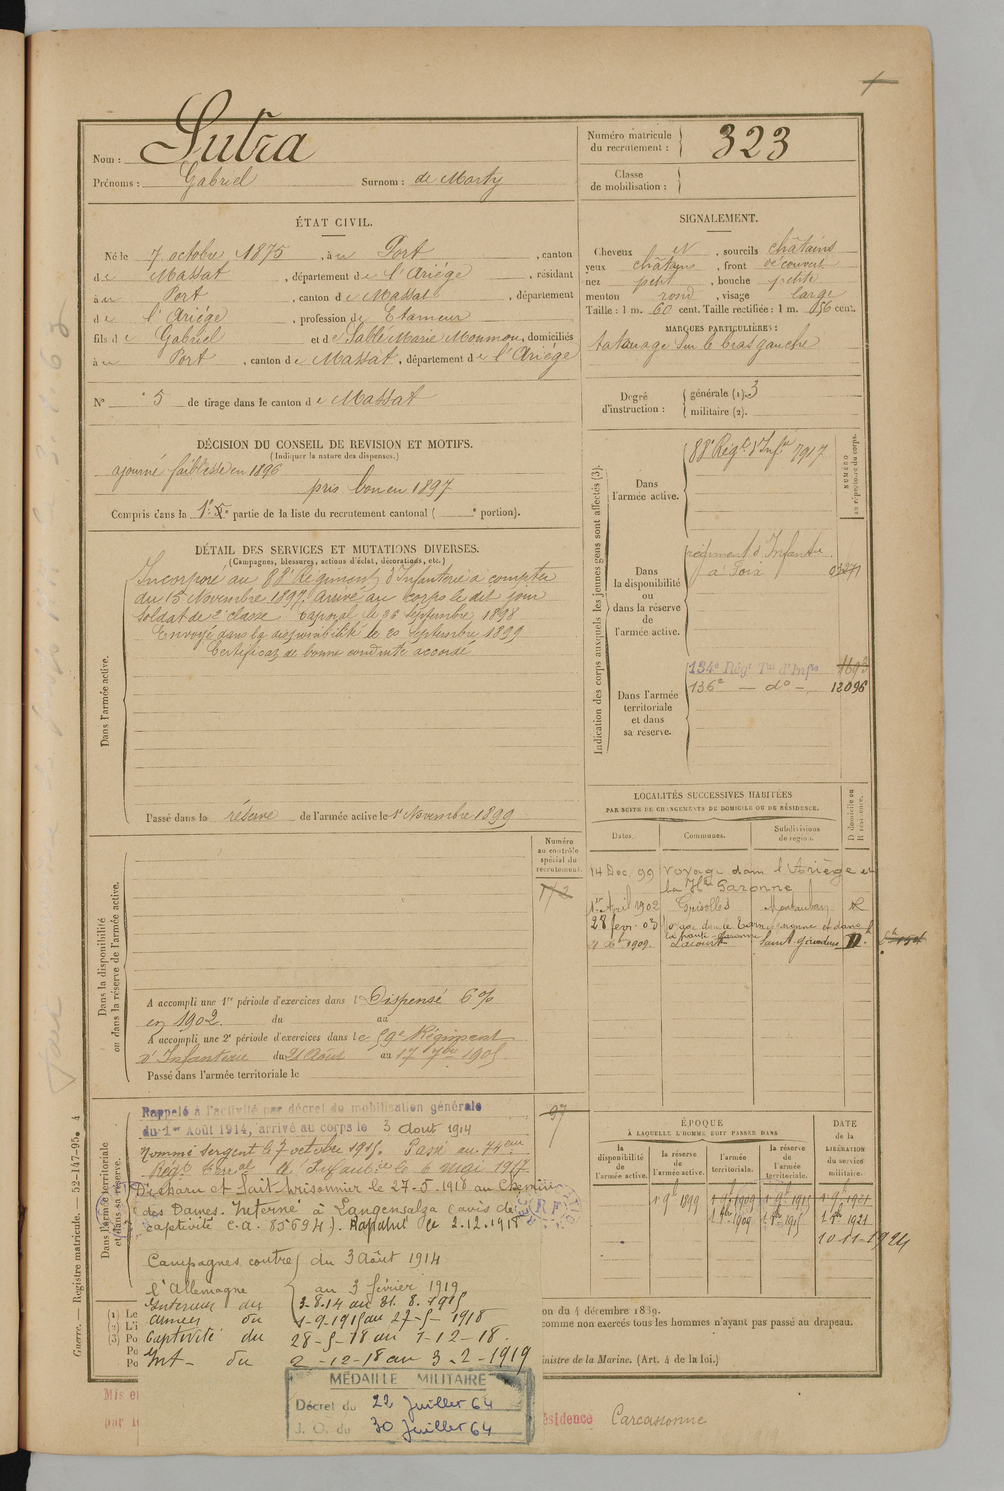 Nom : Sutra
Prénoms : Gabriel Surnom : de Marty
Numéro matricule du recrutement : 323
Classe de mobilisation :
ÉTAT CIVIL.
Né le 7 octobre 1875, à u Port, canton
de Massat, département de l'Ariège, résidant
à u Port, canton de Massat, département
de l'Ariége, profession de Etameur
fils de Gabriel et de Sablé Marie Moumou, domiciliés
à u Port, canton de Massat, département de l'Ariége
N° 5 de tirage dans le canton de Massat
SIGNALEMENT.
Cheveux N, sourcils châtains
yeux châtains, front découvert
nez petit, bouche petite
menton rond, visage large
Taille : 1 m. 60 cent. Taille rectifiée : 1 m. 656 cent.
MARQUES PARTICULIÈRES :
tatouage sur le bras gauche
Degré d'instruction : générale (1). 3
militaire (2).
DÉCISION DU CONSEIL DE REVISION ET MOTIFS.
(Indiquer la nature des dispenses.)
ajourné faiblesse en 1896
pris bon en 1897
Compris dans la 1e partie de la liste du recrutement cantonal ( portion).
DÉTAIL DES SERVICES ET MUTATIONS DIVERSES.
(Campagnes, blessures, actions d'éclat, décorations, etc.)
Dans l'armée active.
Incorporé au 88e Régiment d'Infanterie à compter
du 15 Novembre 1897. Arrivé au corps le dit jour
Soldat de 2e classe Caporal le 26 Septembre 1898
Envoyé dans la disponibilité le 20 Septembre 1899
Certificat de bonne conduite accordé
Passé dans la réserve de l'armée active le 1er Novembre 1899
Indication des corps auxquels les jeunes gens sont affectés (3).
NUMÉRO au répertoire du corps.
Dans l'armée active.
88e Régt d'Infie 7917
Dans la disponibilité ou dans la réserve de l'armée active.
régiment d'Infanterie
à Foix
Dans l'armée territoriale et dans sa réserve.
134e Régt Tal d'Infie
136e — do — 12096
LOCALITÉS SUCCESSIVES HABITÉES
PAR SUITE DE CHANGEMENTS DE DOMICILE OU DE RÉSIDENCE.
Dates. Communes. Subdivisions de région. D domicile ou R résidence.
14 Dec. 99 Voyage dans l'Ariège et
la Hte Garonne
1er Avril 1902 Grisolles Montauban R
28 fevr. 03
la haute-Garonne
1909. Lacourt Saint Girons D.
Dans la disponibilité ou dans la réserve de l'armée active.
Numéro au contrôle spécial du recrutement.
A accompli une 1re période d'exercices dans l Dispensé 6%
en 1902. du au
A accompli une 2e période d'exercices dans le 59e Régiment
d'Infanterie du 21 Août au 17 7bre 1905
Passé dans l'armée territoriale le
97
Dans l'armée territoriale et dans sa réserve.
Rappelé à l'activité par décret de mobilisation générale
du 1er Août 1914, arrivé au corps le 3 Aout 1914
Nommé sergent le 7 octobre 1915. Passé au 74eme
Régt Terral d'Infanterie le 6 mai 1917.
Disparu et fait prisonnier le 27-5-1918 au Chemin
des Dames. Interné à Langensalza (avis de
captivité C.A. 85694). Rapatrié le 2.12.1918
Campagnes contre du 3 Août 1914
l'Allemagne au 3 février 1919
Intérieur du 3-8-14 au 31.8.1915
Armées du 1-9-1915 au 27-5-1918
Captivité du 28-5-18 au 1-12-18.
Int- du 2-12-18 au 3-2-1919
ÉPOQUE
À LAQUELLE L'HOMME DOIT PASSER DANS
la disponibilité de l'armée active. la réserve de l'armée active. l'armée territoriale. la réserve de l'armée territoriale.
DATE de la LIBÉRATION du service militaire.
1 9bre 1899 1 9bre 1909 1 9bre 1915 1 9bre 1921
1909 1915 1921
10-11-1924
(1) Le
(2) L'i
(3) Po
Po
Po
on du 4 décembre 1889.
comme non exercés tous les hommes n'ayant pas passé au drapeau.
inistre de la Marine. (Art. 4 de la loi.)
MÉDAILLE MILITAIRE
Décret du 22 Juillet 64
J. O. du 30 Juillet 64
Mis e
par l
ésidence Carcassonne
Guerre. — Registre matricule. — 52-147-95. 4